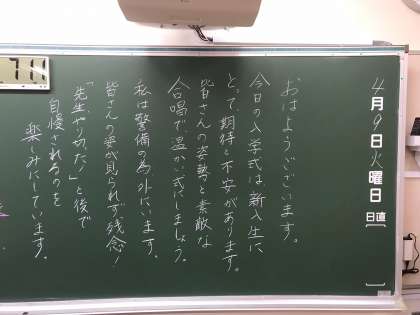 4月9日火曜日
日直
おはようございます。
今日の入学式は新入生に
とって、期待と不安があります。
皆さんの姿勢と素敵な
合唱で、温かい式にしましょう。
私は警備の為外にいます。
皆さんの姿が見られず残念!
「先生、やり切った!」と後で
自慢されるのを
楽しみにしています。